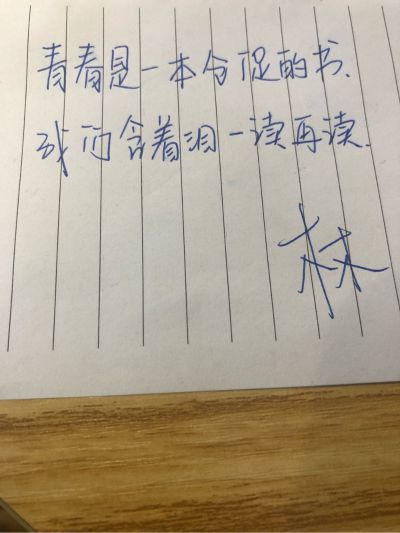 青春是一本仓促的书、
我们含着泪一读再读.
林